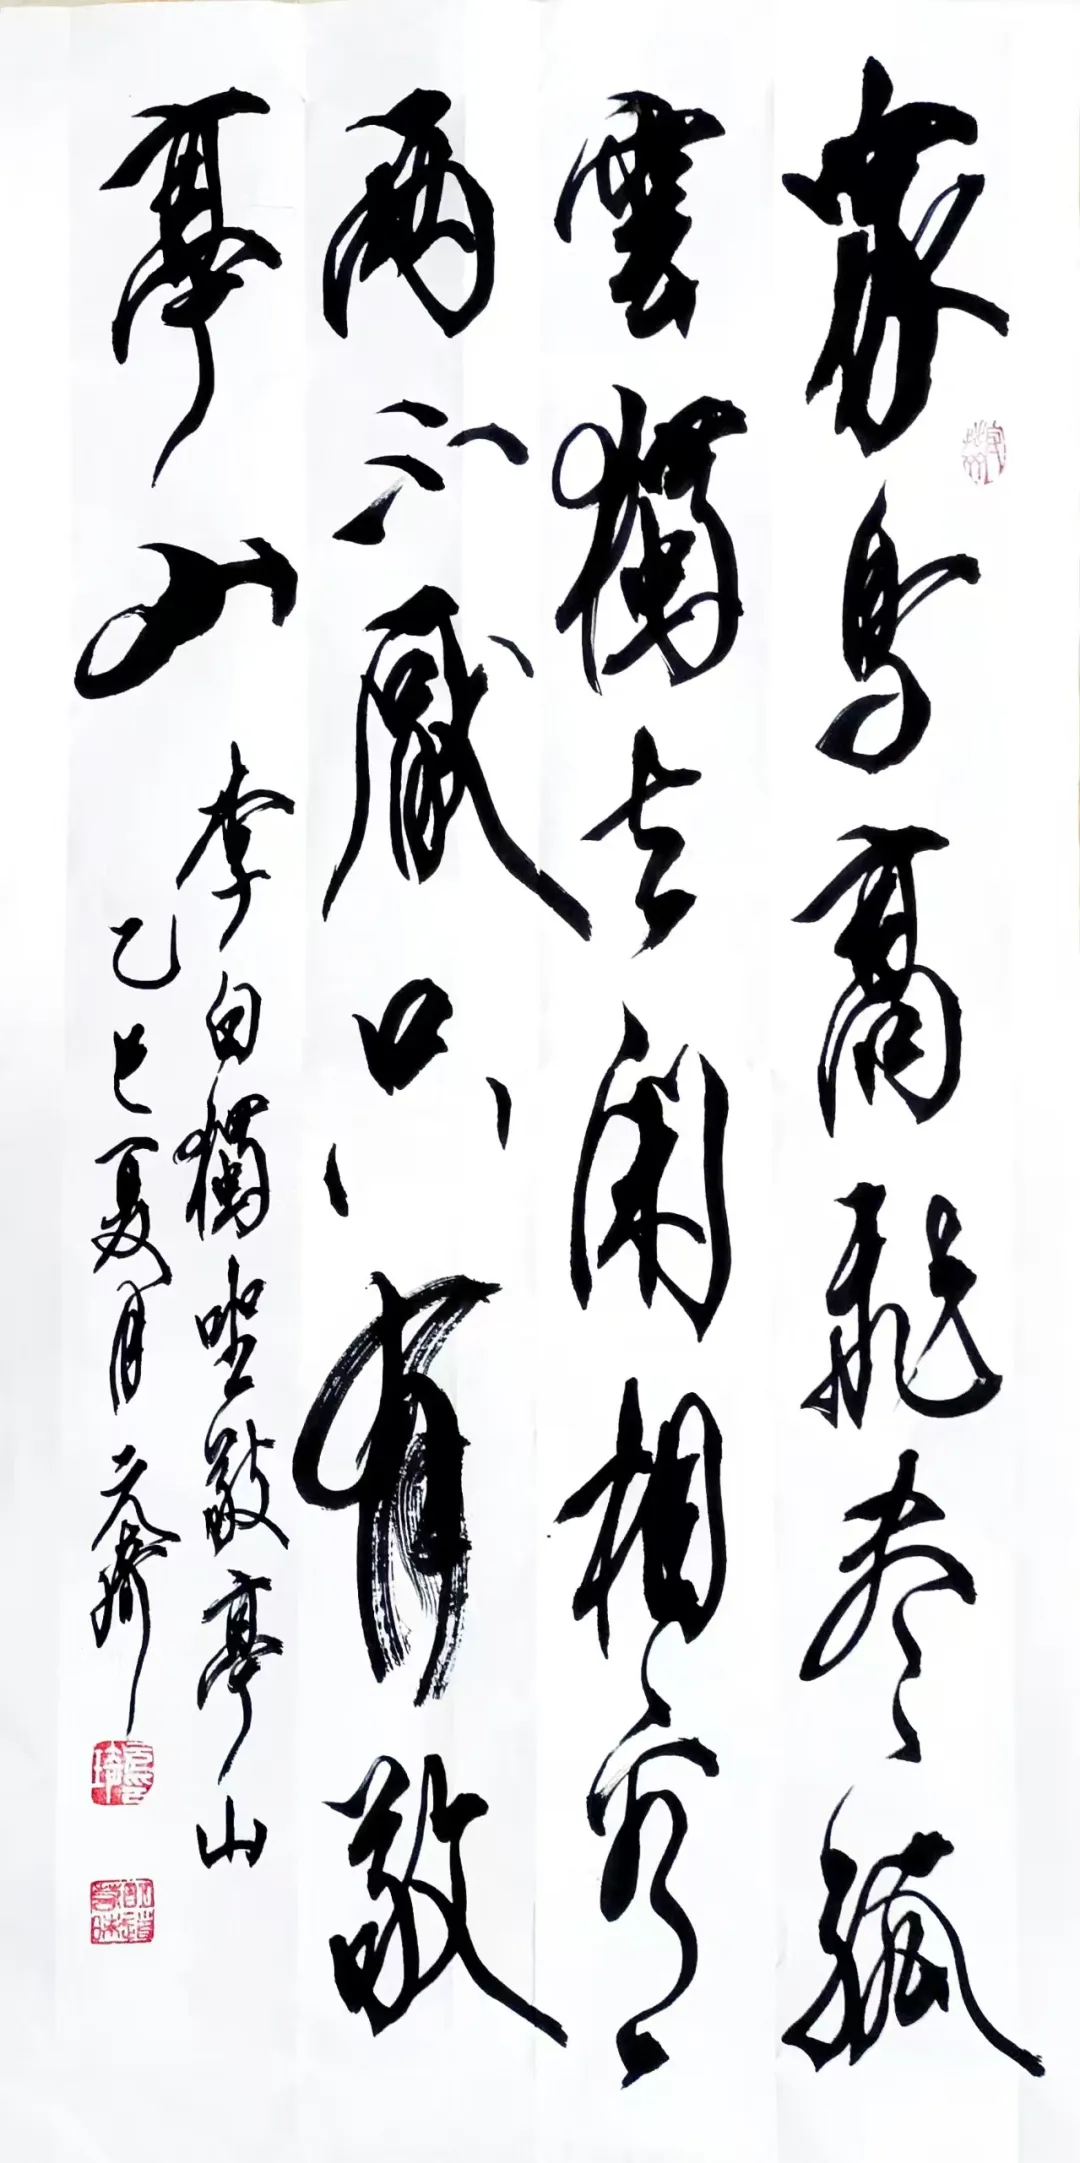 衆鳥高飛尽孤
雲獨去閑相看
兩不厭只有敬
亭山
李白獨坐敬亭山
乙巳夏月